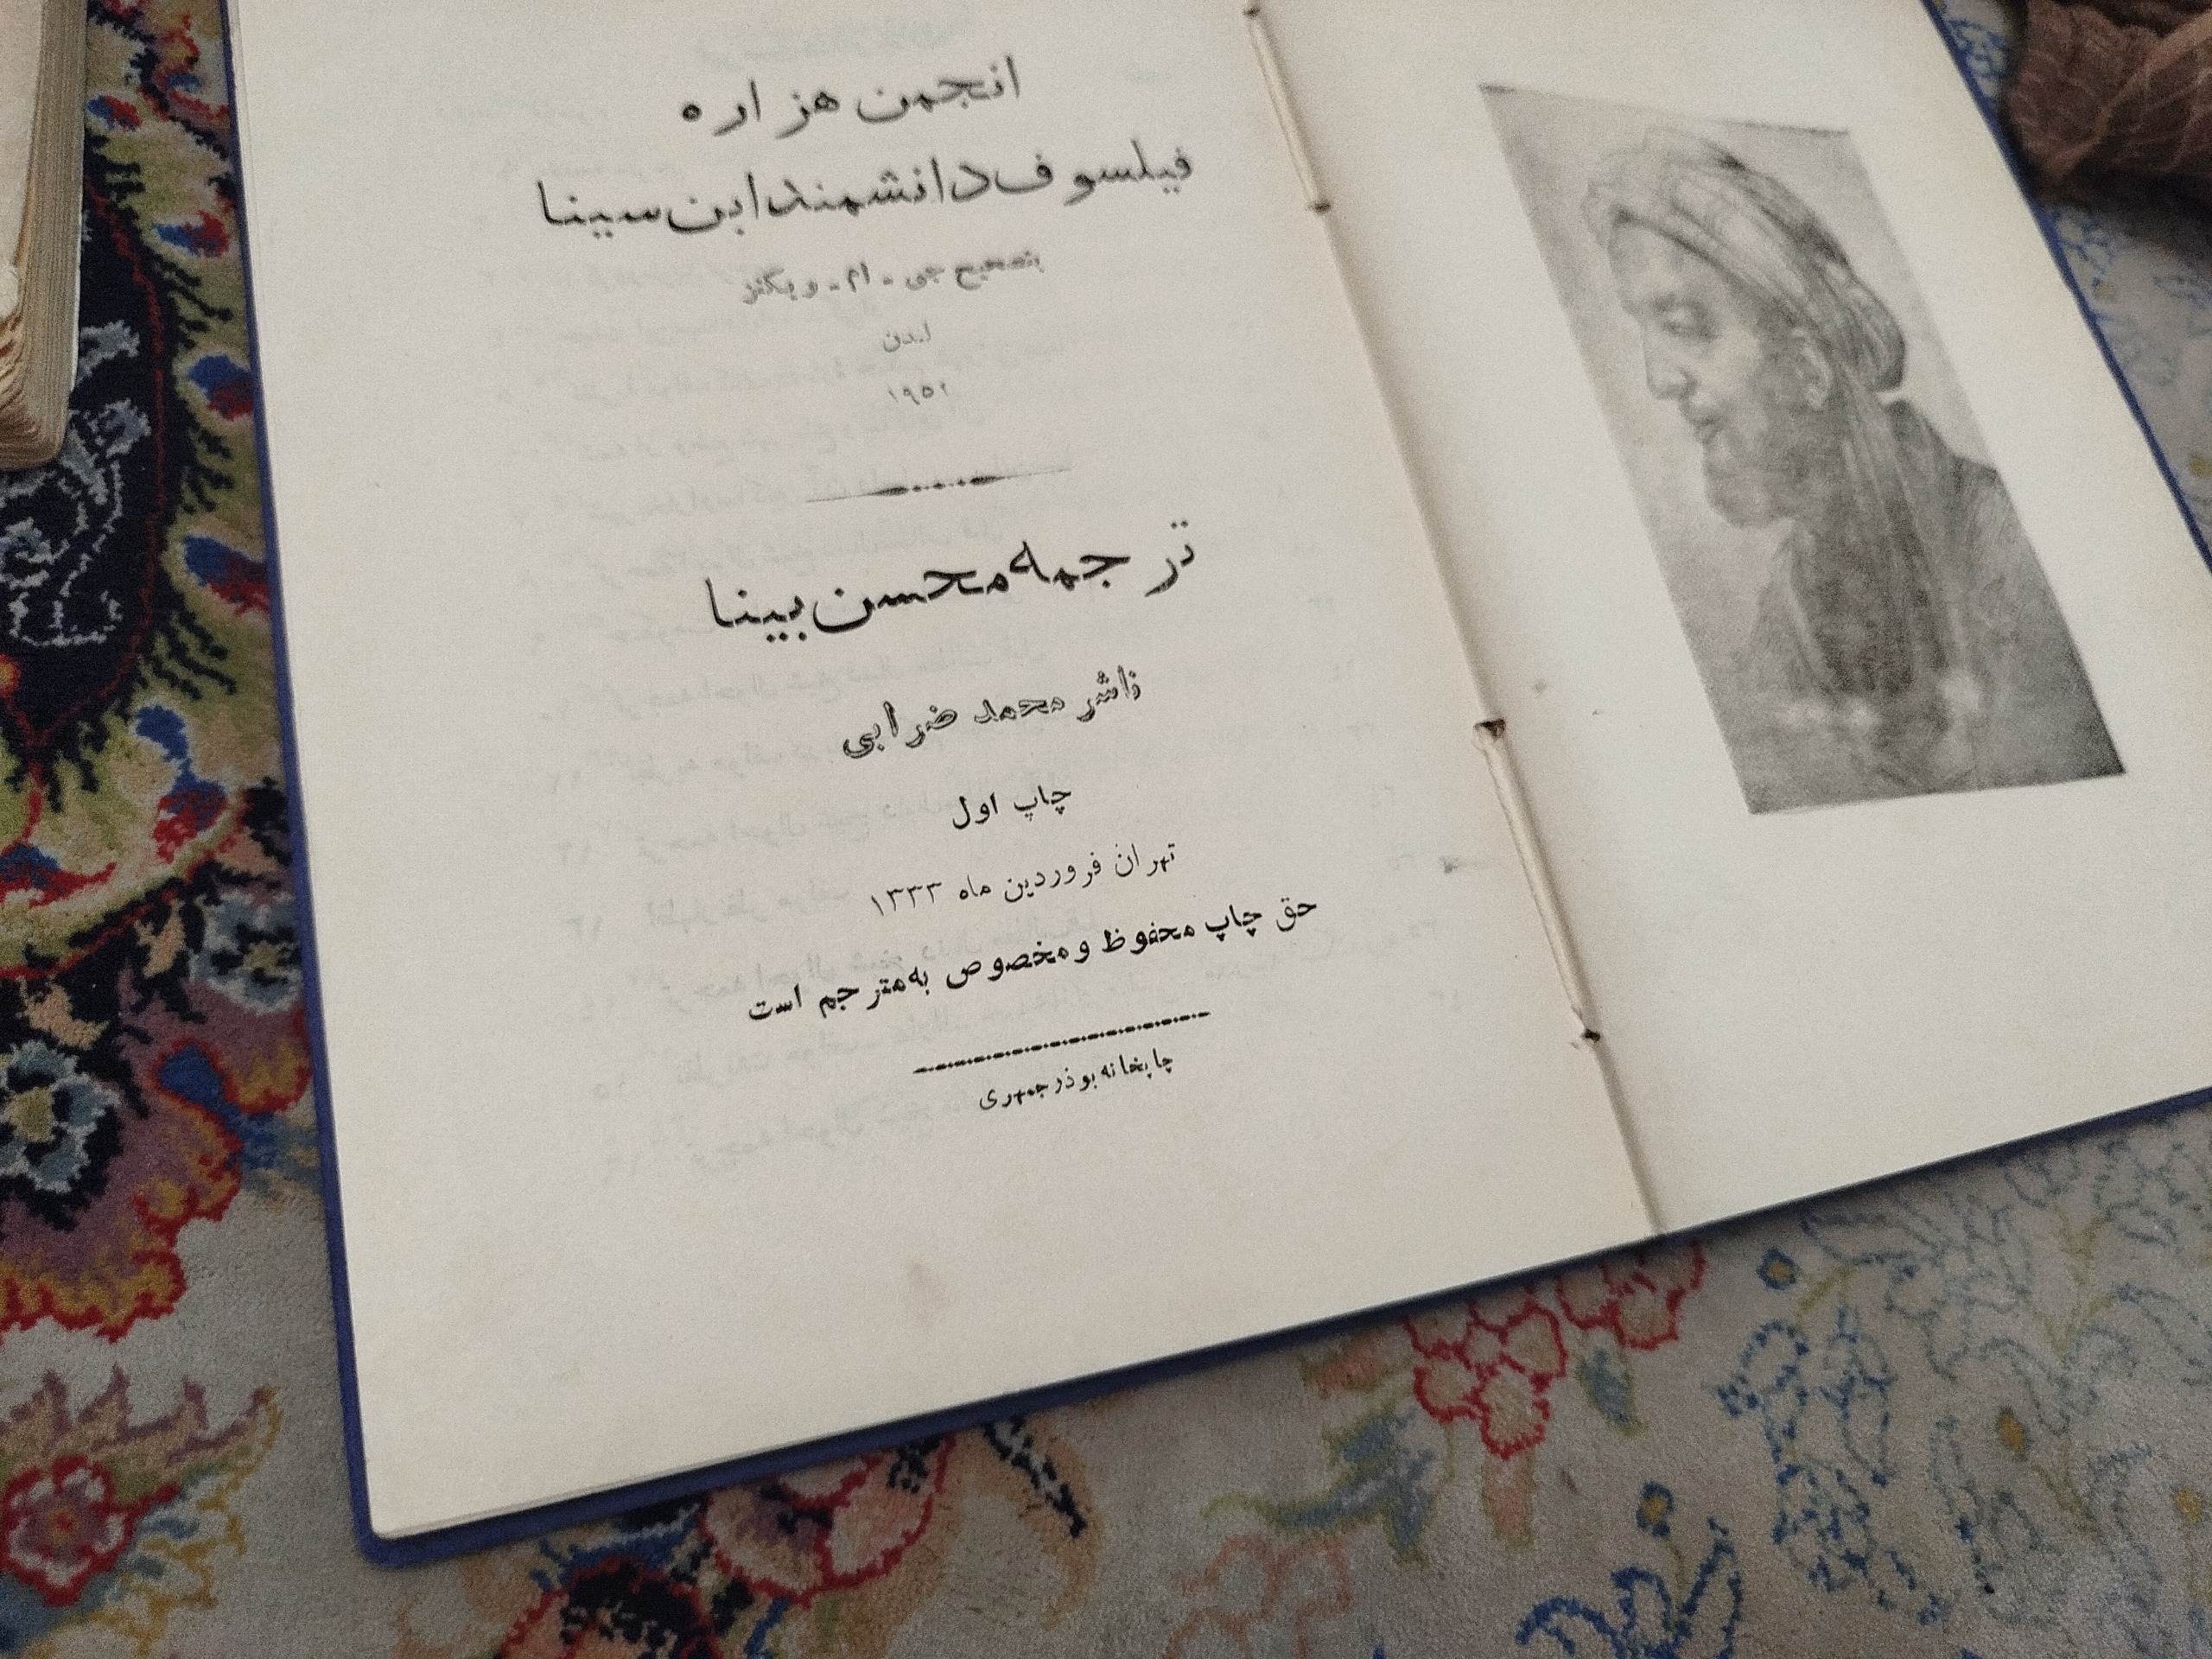 انجمن هزاره
فیلسوف دانشمند ابن سینا
بتصحیح جی - ام - ویکنز
لندن
۱۹۵۲
ترجمه محسن بینا
ناشر محمد ضرابی
چاپ اول
تهران فروردین ماه ۱۳۳۳
حق چاپ محفوظ و مخصوص به مترجم است
چاپخانه بوذرجمهری